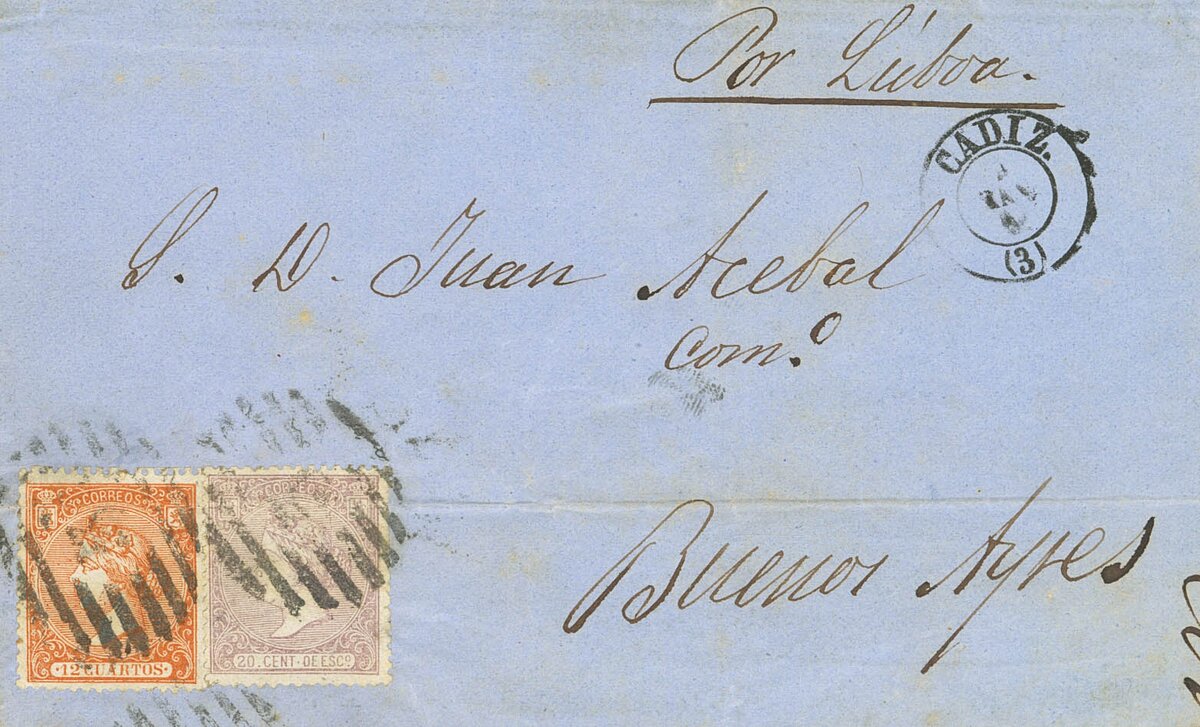 Por Lisboa.
CADIZ.
(3)
S. D. Juan Acebal
Com.º
Buenos Ayres
CORREOS
12 CUARTOS
CORREOS
20. CENT. DE ESCº.